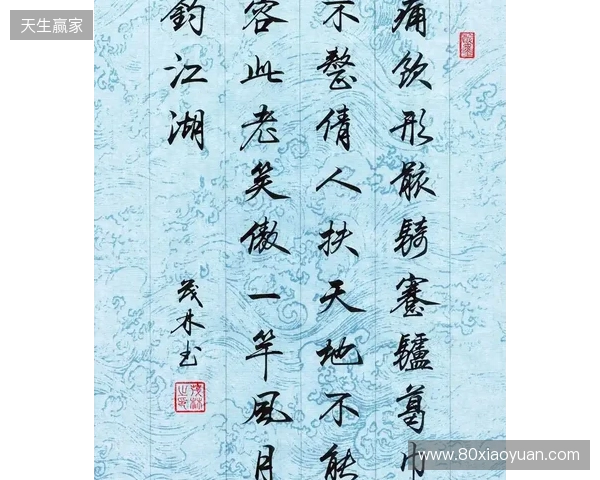 天生赢家
痛飲形骸騎蹇驢葛巾
不整倩人扶天地不能
容此老笑傲一竿風月
釣江湖
茂林书
www.80xiaoyuan.com